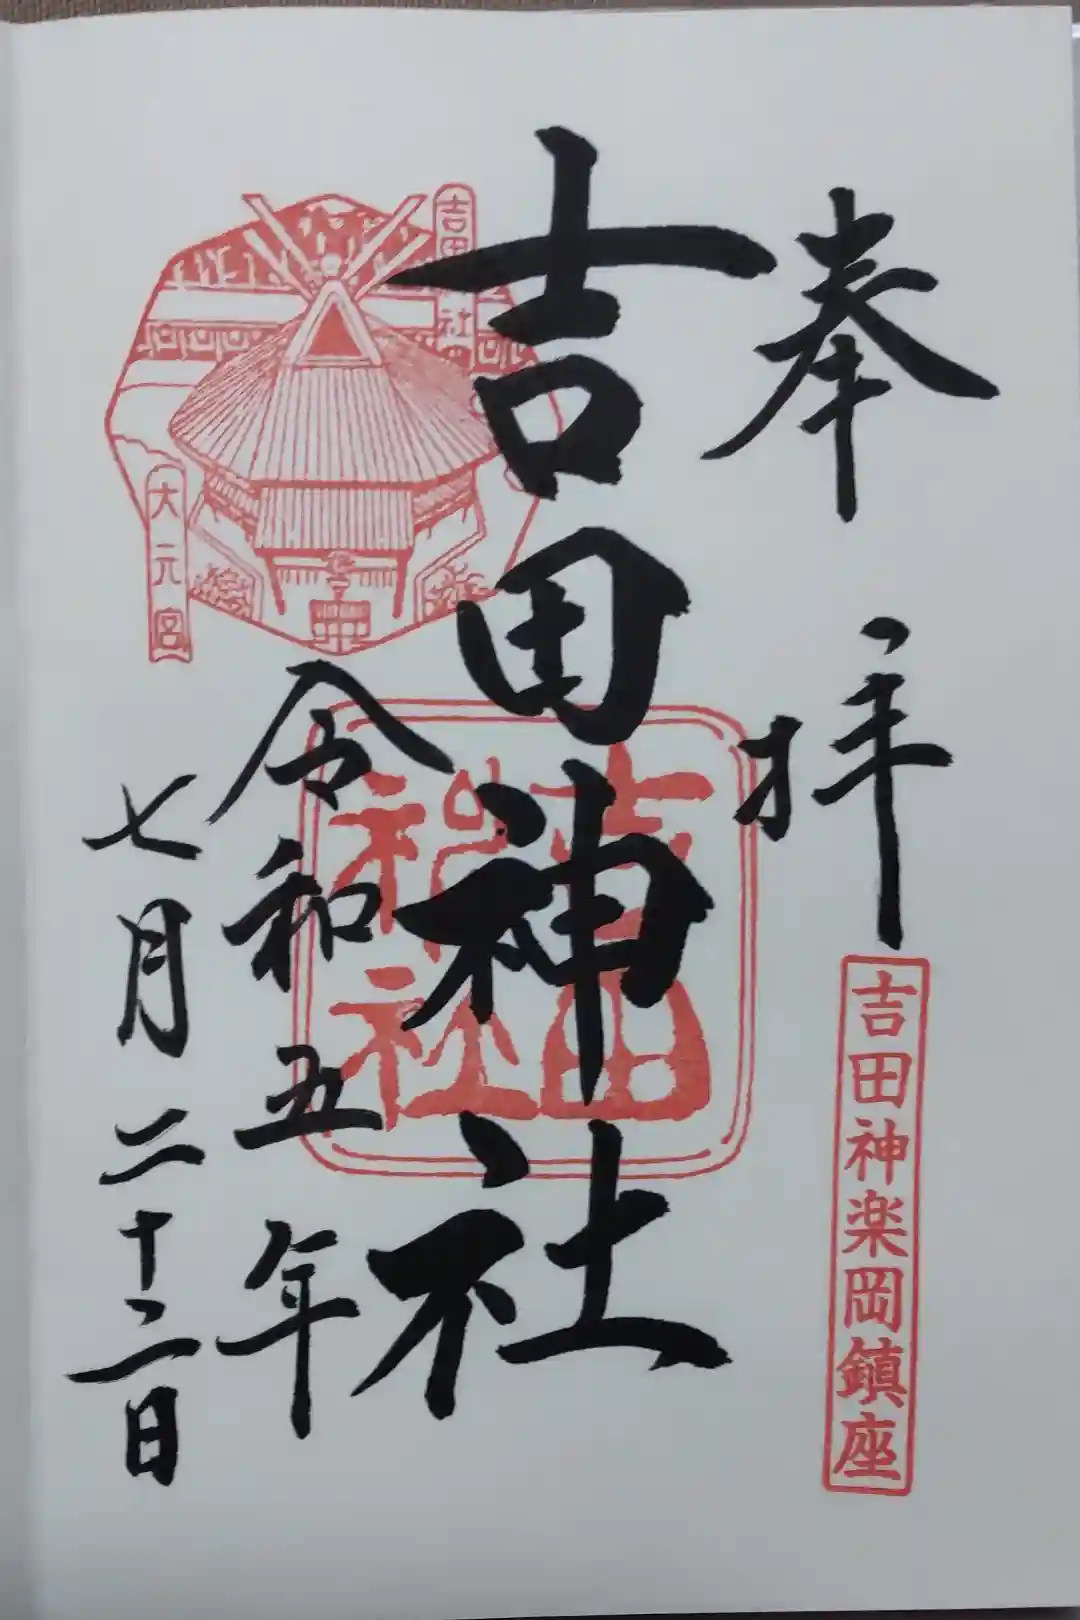 奉拝
吉田神楽岡鎮座
吉田神社
吉田神社
令和五年
七月二十二日
大元宮